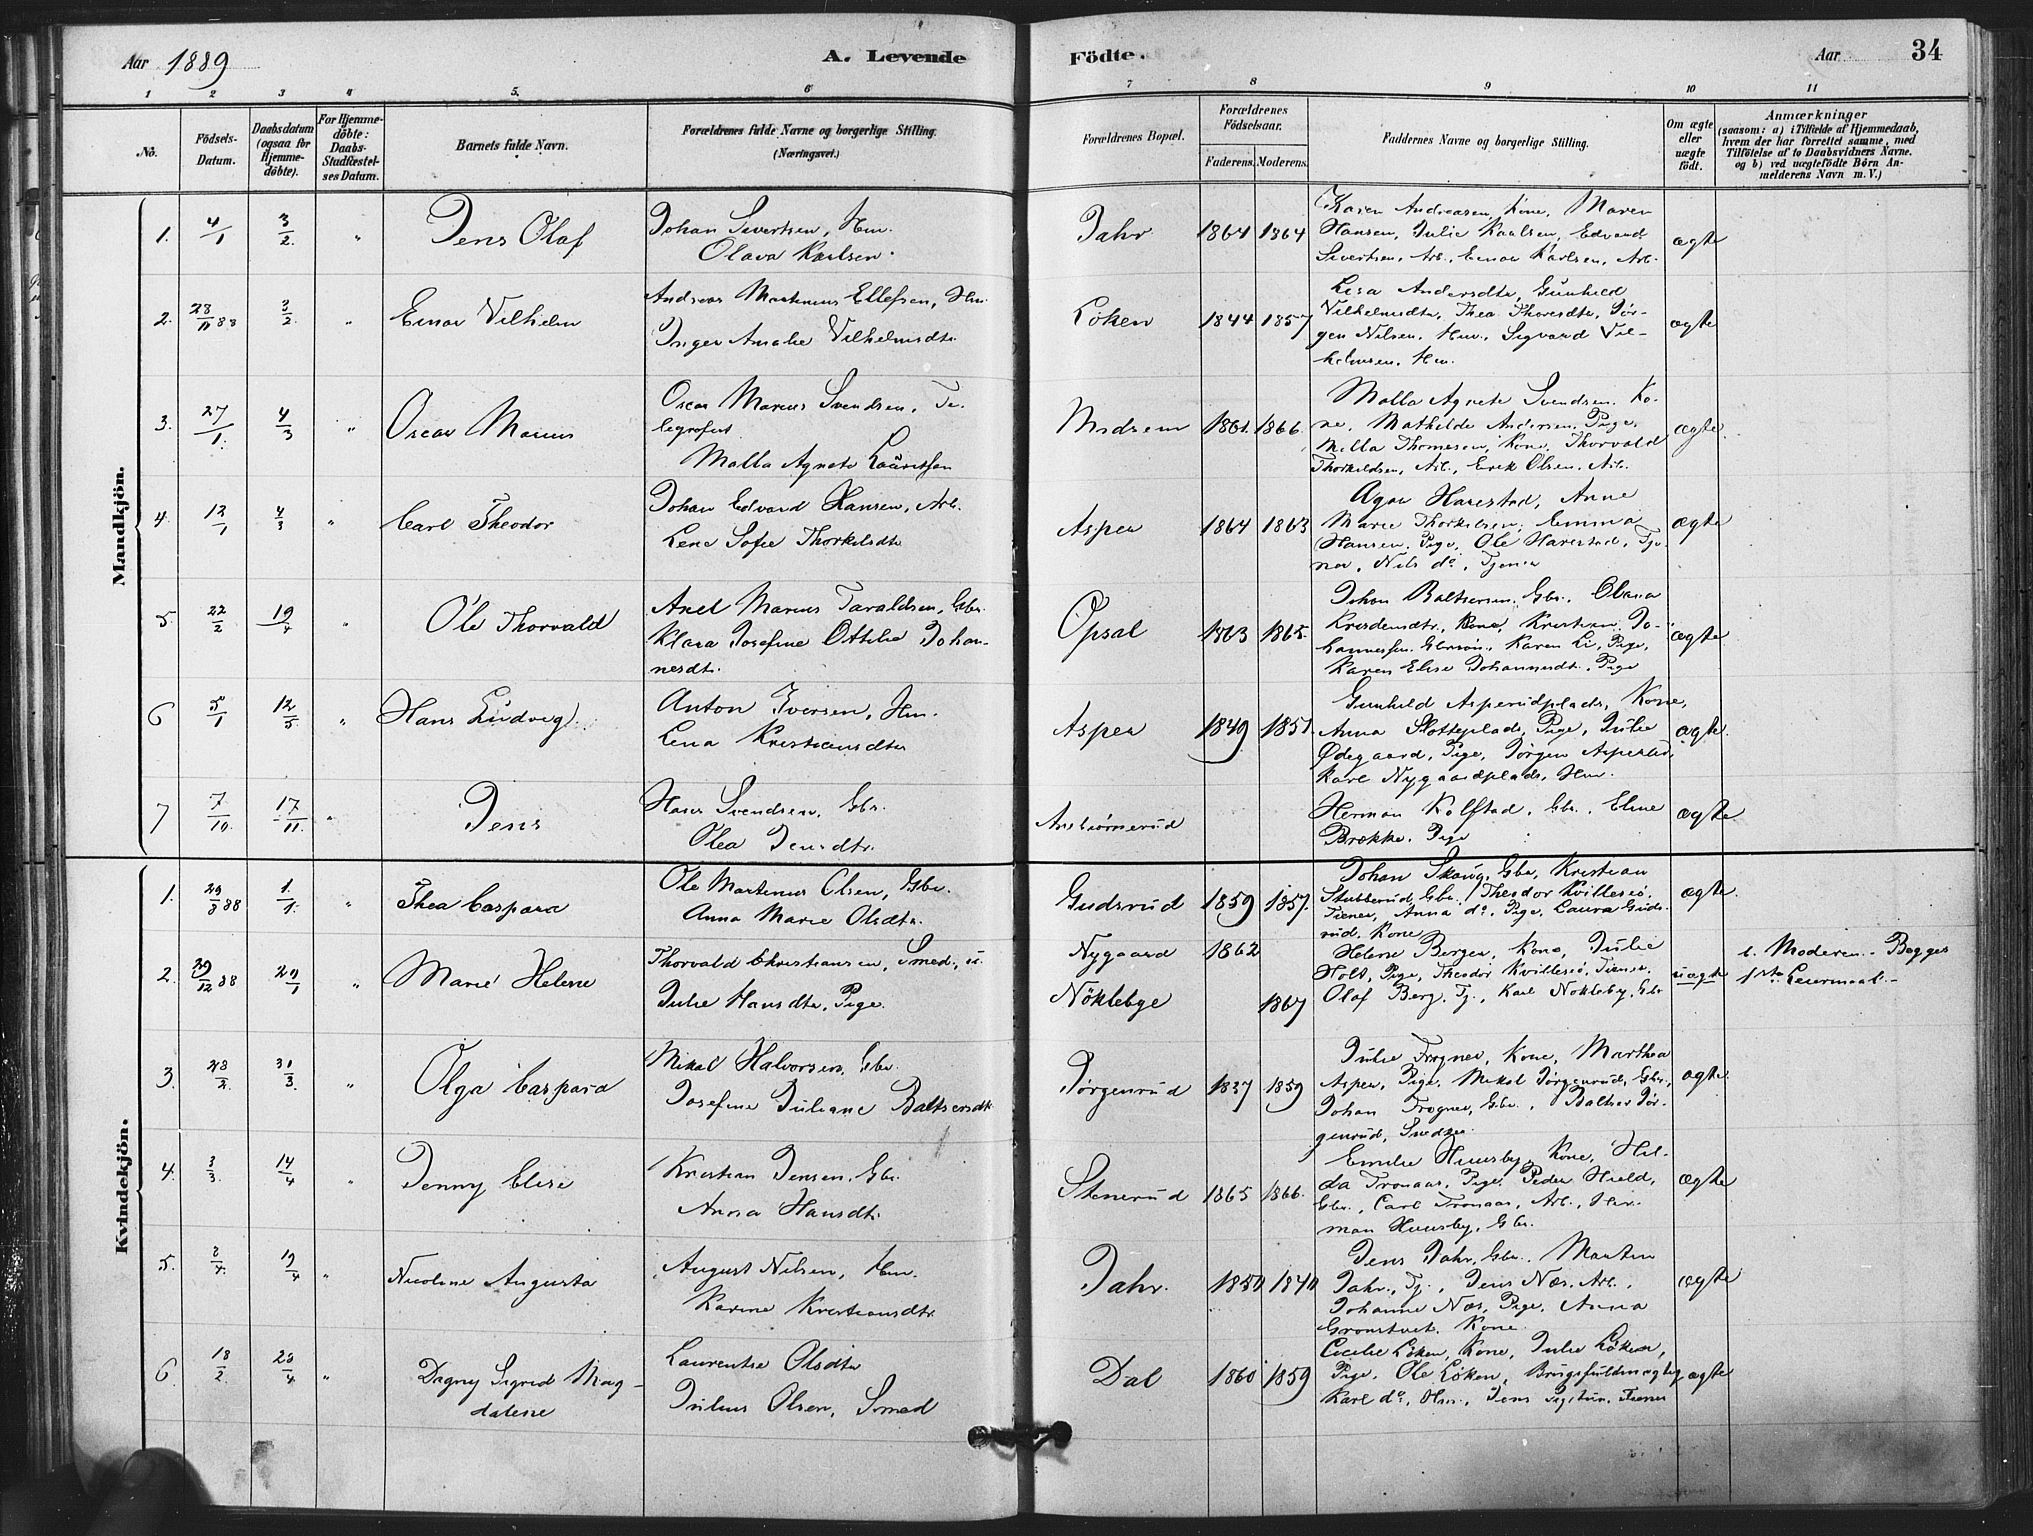 Aar 1889
A. Levende
Födte.
Aar
34
1 2 3 4 5. 6 7 8 9 10 11
No.
Födsels-
Datum.
Daabsdatum
(ogsaa for
Hjemme-
döbte).
For Hjemme-
döbte:
Daabs-
Stadfæstel-
ses Datum.
Barnets fulde Navn.
Forældrenes fulde Navne og borgerlige Stilling.
(Næringsvei.)
Forældrenes Bopæl.
Forældrenes
Födselsaar.
Faderens. Moderens.
Faddernes Navne og borgerlige Stilling.
Om ægte
eller
uægte
födt.
Anmærkninger
(saasom: a) i Tilfælde af Hjemmedaab,
hvem der har forrettet samme, med
Tilföielse af to Daabsvidners Navne.
og b) ved uægtefödte Börn An-
melderens Navn m. V.)
Mandkjön.
1. 4/1 3/2 " Jens Olaf
Johan Sivertsen, Hm.
Olava Karlsen.
Jahr 1864 1864
Karen Andreasen, Kone, Maren
Hansen, Julie Karlsen, Edvard
Sivertsen, Arb., Einar Karlsen, Arb.
ægte
2. 28/11 88 3/2 " Einar Vilhelm
Andreas Martinius Ellefsen, Hm.
Inger Amalie Vilhelmsdtr.
Löken 1844 1857
Lisa Andersdtr, Gunhild
Vilhelmsdtr, Thea Thoresdtr, Jör-
gen Nilsen, Hm., Sigvard Vil-
helmsen, Hm.
ægte
3. 27/1. 4/3 " Oscar Marius
Oscar Marius Svendsen, Te-
legrafist
Malla Agnete Lauritsen
Midsem 1861. 1866.
Malla Agnete Svendsen, Ko-
ne, Mathilde Andersen, Pige,
Milla Thomesen, Kone, Thorvald
Thorkildsen, Arb., Erik Olsen, Arb.
ægte.
4. 13/1 4/3 " Carl Theodor
Johan Edvard Hansen, Arb.
Lene Sofie Thorkelsdtr
Asper 1864 1863
Agar Harestad, Anne
Marie Thorkelsen, Emma
Hansen, Pige, Ole Harestad, Tje-
ner, Nils do, Tjener
ægte
5. 22/2 19/4 " Ole Thorvald
Axel Marius Taraldsen, Gbr.
Klara Josefine Ottilie Johan-
nesdtr.
Opsal 1863 1865
Johan Baltsersen, Gbr., Olava
Kristensdtr., Kone, Kristian Jo-
hannessen, Gbrsön, Karen Li, Pige,
Karen Elise Johannesdtr. Pige
ægte
6 5/1 12/5. " Hans Ludvig
Anton Iversen, Hm.
Lena Kristiansdtr
Asper 1849 1851.
Gunhild Asperudplads, Kone,
Anna Slotteplads, Pige, Julie
Ødegaard, Pige, Jörgen Asperud,
Karl Nygaardplads, Hm.
ægte
7 7/10. 17/11. " Jens
Hans Svendsen, Gbr.
Olea Jensdtr.
Ansbiørnsrud
Herman Kolstad, Gbr., Eline
Brække, Pige
ægte
Kvindekjön.
1. 29/8 88 1/1. " Thea Caspara
Ole Martinius Olsen, Gbr.
Anna Marie Olsdtr.
Gudsrud 1859 1857.
Johan Skaug, Gbr, Kristian
Stubberud, Gbr., Theodor Kvillesjö,
Tiener, Anna do, Pige, Laura Guds-
rud, Kone
ægte.
2. 29/12 88 20/1 " Marie Helene
Thorvald Christiansen, Smed, u.
Julie Hansdtr, Pige.
Nygaard 1862
Nöklebye 1867
Helene Bergen, Kone, Julie
Holt, Pige, Theodor Kvillesjö, Tiener,
Olaf Berg, Tj., Karl Nökleby, Gbr
uægte
b. Moderen. - Begges
1ste Leiermaal. -
3. 28/2. 31/3. " Olga Caspara
Mikal Halvorsen, Gbr.
Josefine Juliane Baltsersdtr.
Jörgenrud 1837 1859
Julie Frogner, Kone, Marthea
Asper, Pige, Mikal Jörgenrud, Gbr.,
Johan Frogner, Gbr., Baltser Jör-
genrud, Snedker
ægte
4. 3/3. 14/4 " Jenny Elise
Kristian Jensen, Gbr.
Anna Hansdtr.
Stenerud 1865 1866.
Emilie Huusby, Kone, Hil-
da Tronaas, Pige, Peder Hield,
Gbr., Carl Tronaas, Arb., Her-
man Huusby, Gbr.
ægte
5. 2/4. 19/4 " Nicoline Augusta
August Nilsen, Hm.
Karine Kristiansdtr.
Jahr. 1850 1840
Jens Jahr, Gbr. Martin
Jahr, Tj., Jens Næs, Arb.,
Johanne Næs, Pige, Anna
Grönstvet, Kone
ægte
6. 18/2. 28/4 " Dagny Sigrid Mag-
dalene
Laurentse Olsdtr
Julius Olsen, Smed
Dal 1860 1859
Cecilie Löken, Kone, Julie Löken,
Pige, Ole Löken, Brugsfuldmægtig
Karl do, Hm., Jens Tiener
ægte